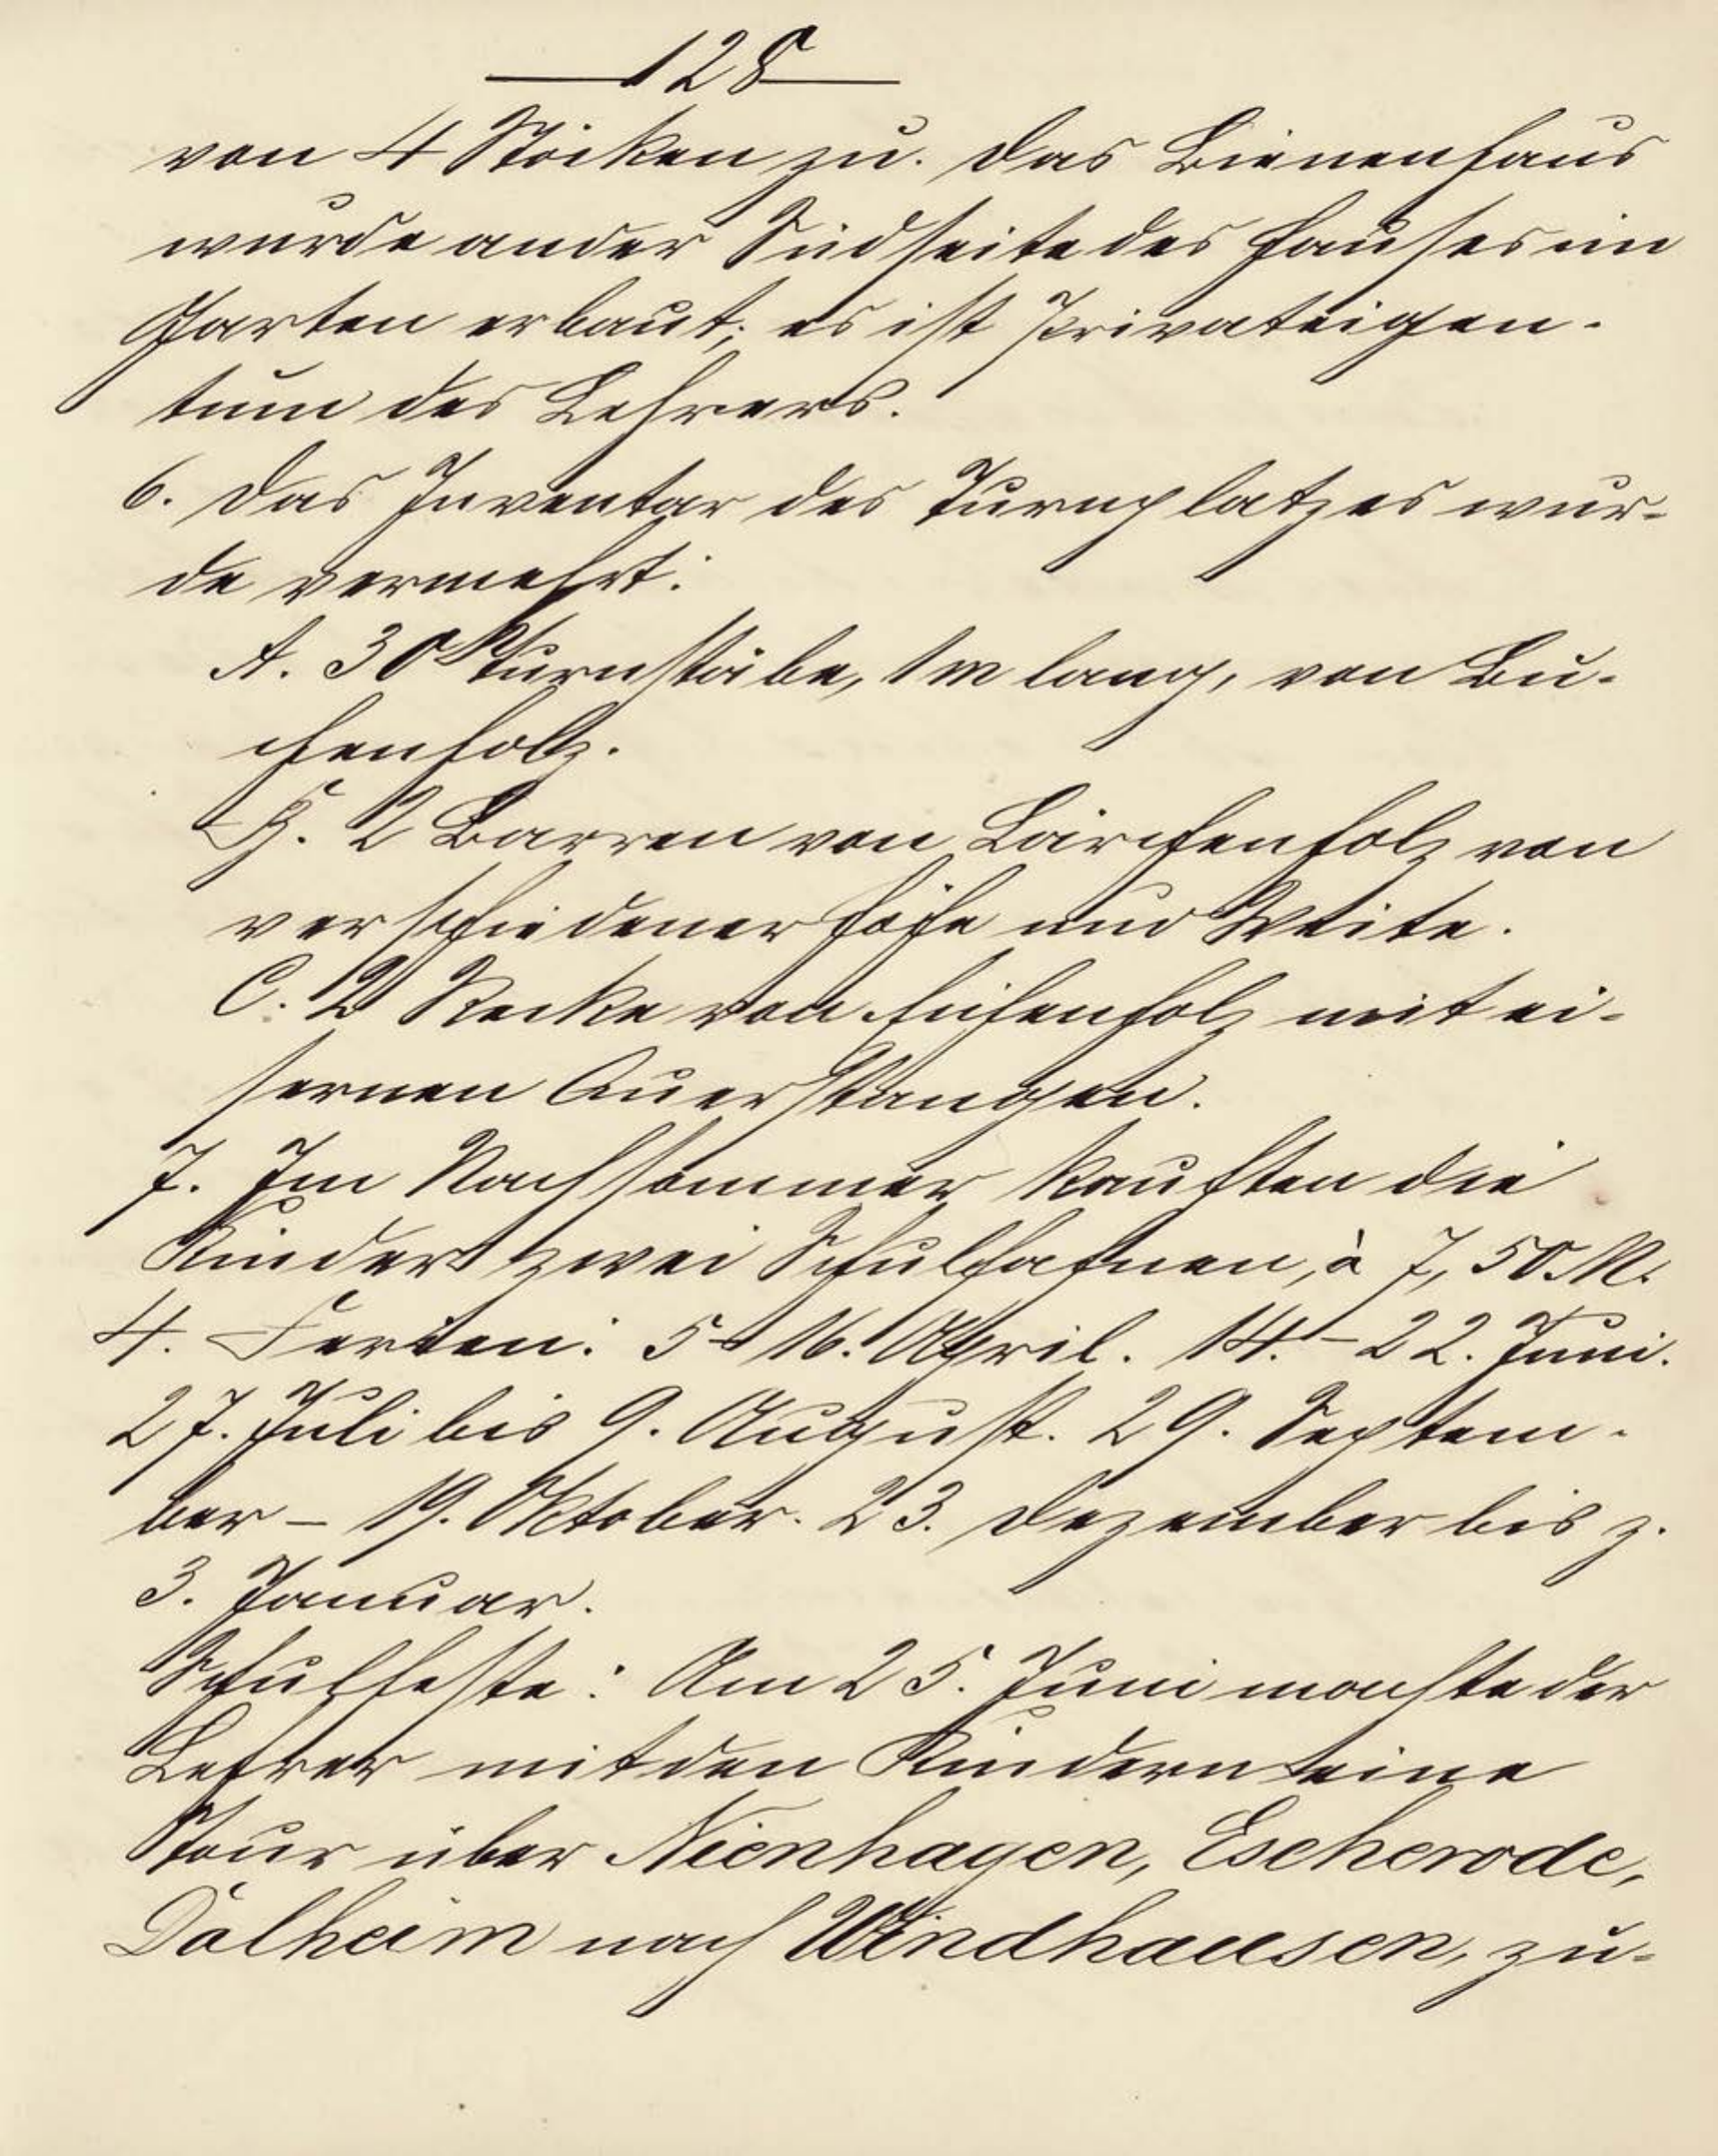 128
von 4 Stöcken zu. Das Bienenhaus
wurde an der Südseite des Hauses im
Garten erbaut; es ist Privateigen-
tum des Lehrers.
6. Das Inventar des Turnplatzes wur-
de vermehrt:
A. 30 Turnstäbe, 1 m lang, von Bu-
chenholz.
B. 2 Barren von Lärchenholz von
verschiedener Höhe und Weite.
C. 2 Recke von Eichenholz mit ei-
sernen Querstangen.
7. Im Nachsommer kauften die
Kinder zwei Schulfahnen, à 7,50 M.
4. Ferien: 5 – 16. April. 14. – 22. Juni.
27. Juli bis 9. August. 29. Septem-
ber – 19. Oktober. 23. Dezember bis z.
3. Januar.
Schulfeste: Am 25. Juni machte der
Lehrer mit den Kindern eine
Tour über Nienhagen, Escherode,
Dalheim nach Windhausen, zu-